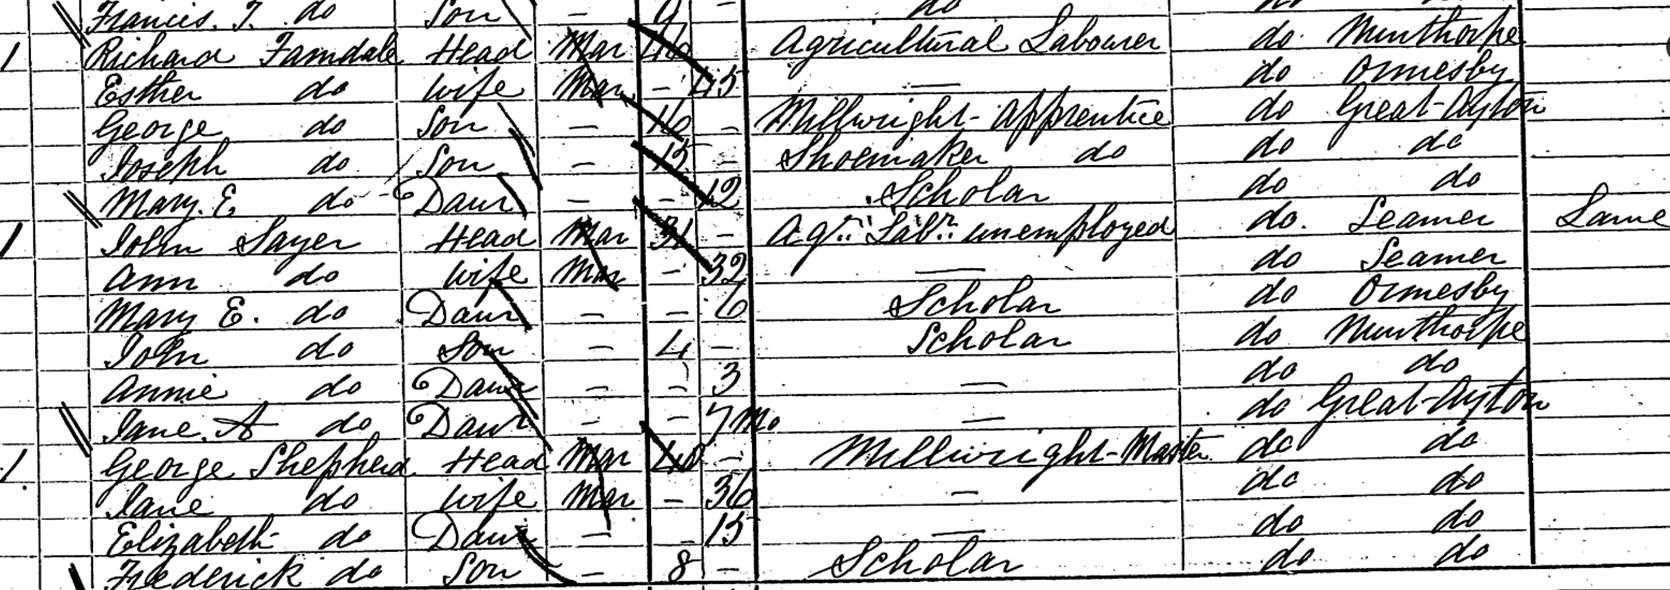 Francis. T. do Son — 9 — do do do
1 Richard Farndale Head Mar — Agricultural Labourer do. Nunthorpe
Esther do Wife Mar — 45 — do Ormesby
George do Son — 16 — Millwright- Apprentice do Great-Ayton
Joseph do Son — 15 — Shoemaker do do do
Mary. E. do Daur — — 12 Scholar do do
1 John Sayer Head Mar — Agrl. Labr. unemployed do. Seamer Lame
Ann do Wife Mar — 32 — do Seamer
Mary E. do Daur — — 6 Scholar do Ormesby
John do Son — 4 — Scholar do Nunthorpe
Annie do Daur — — 3 — do do
Jane. A do Daur — — 7 Mo — do Great-Ayton
1 George Shepherd Head Mar — Millwright-Master do do
Jane do Wife Mar — 36 — do do
Elizabeth do Daur — — 15 — do do
Frederick do Son — 8 — Scholar do do